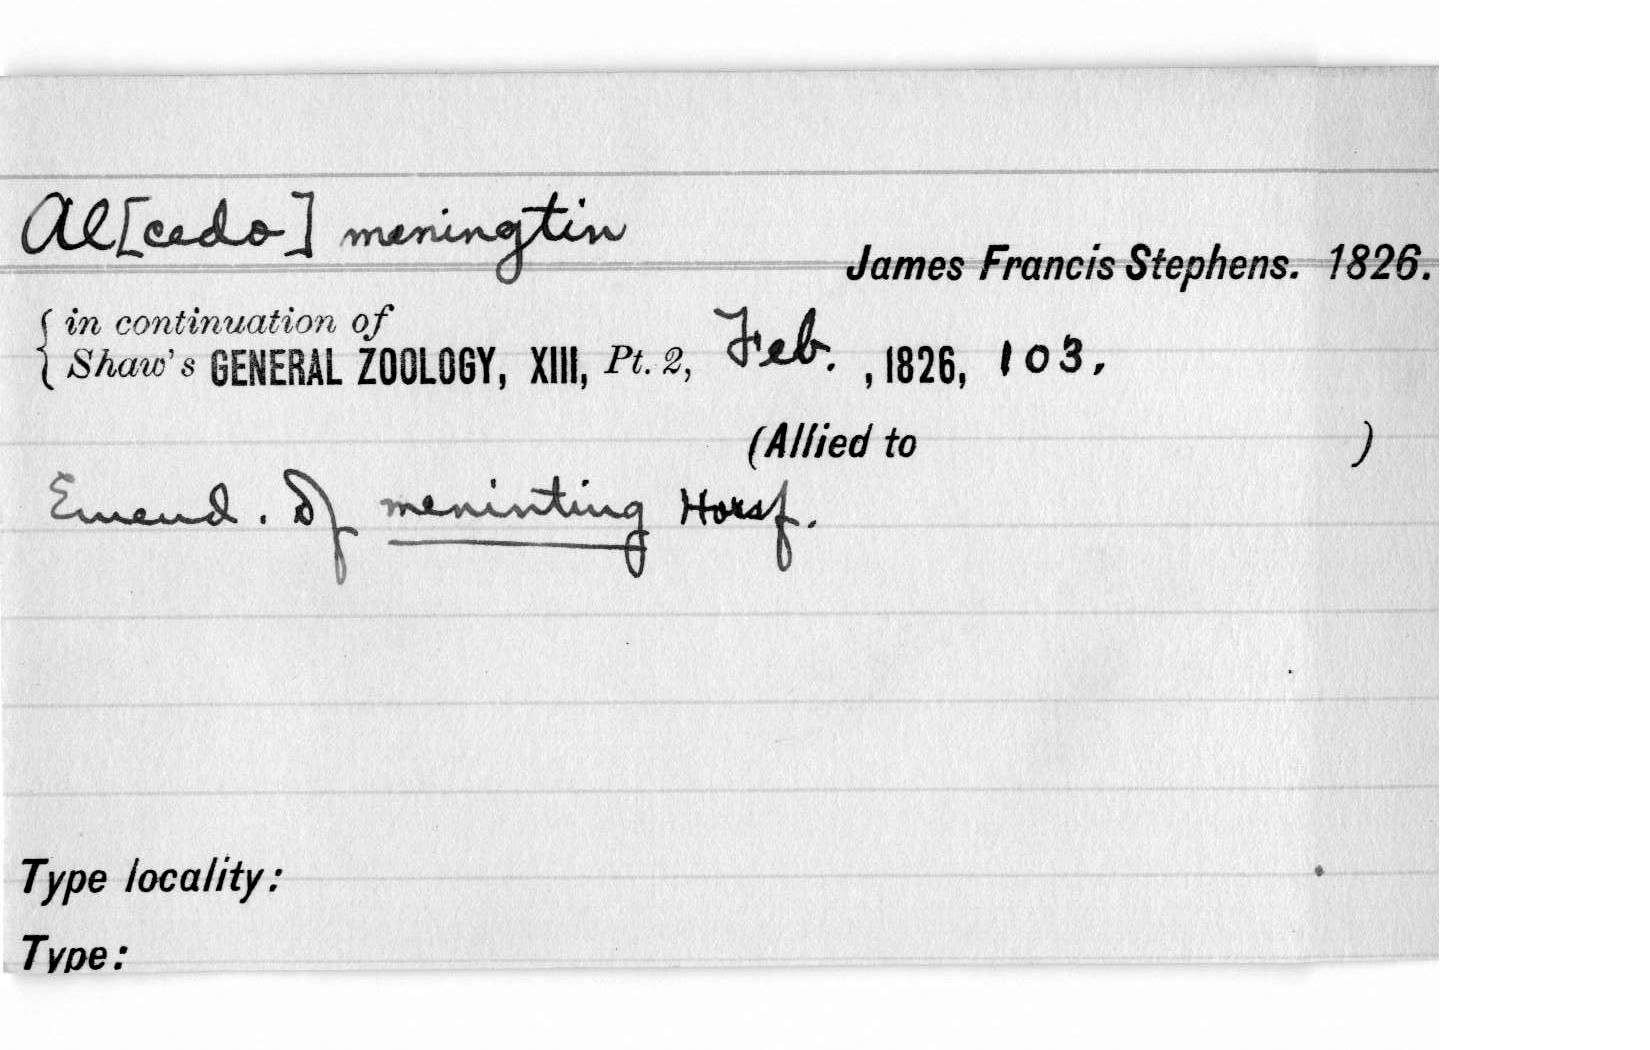 Al[cedo] meningtin
James Francis Stephens. 1826.
{ in continuation of
Shaw's GENERAL ZOOLOGY, XIII, Pt. 2, Feb. , 1826, 103,
(Allied to )
Emend. of meninting Horsf.
Type locality:
Type: